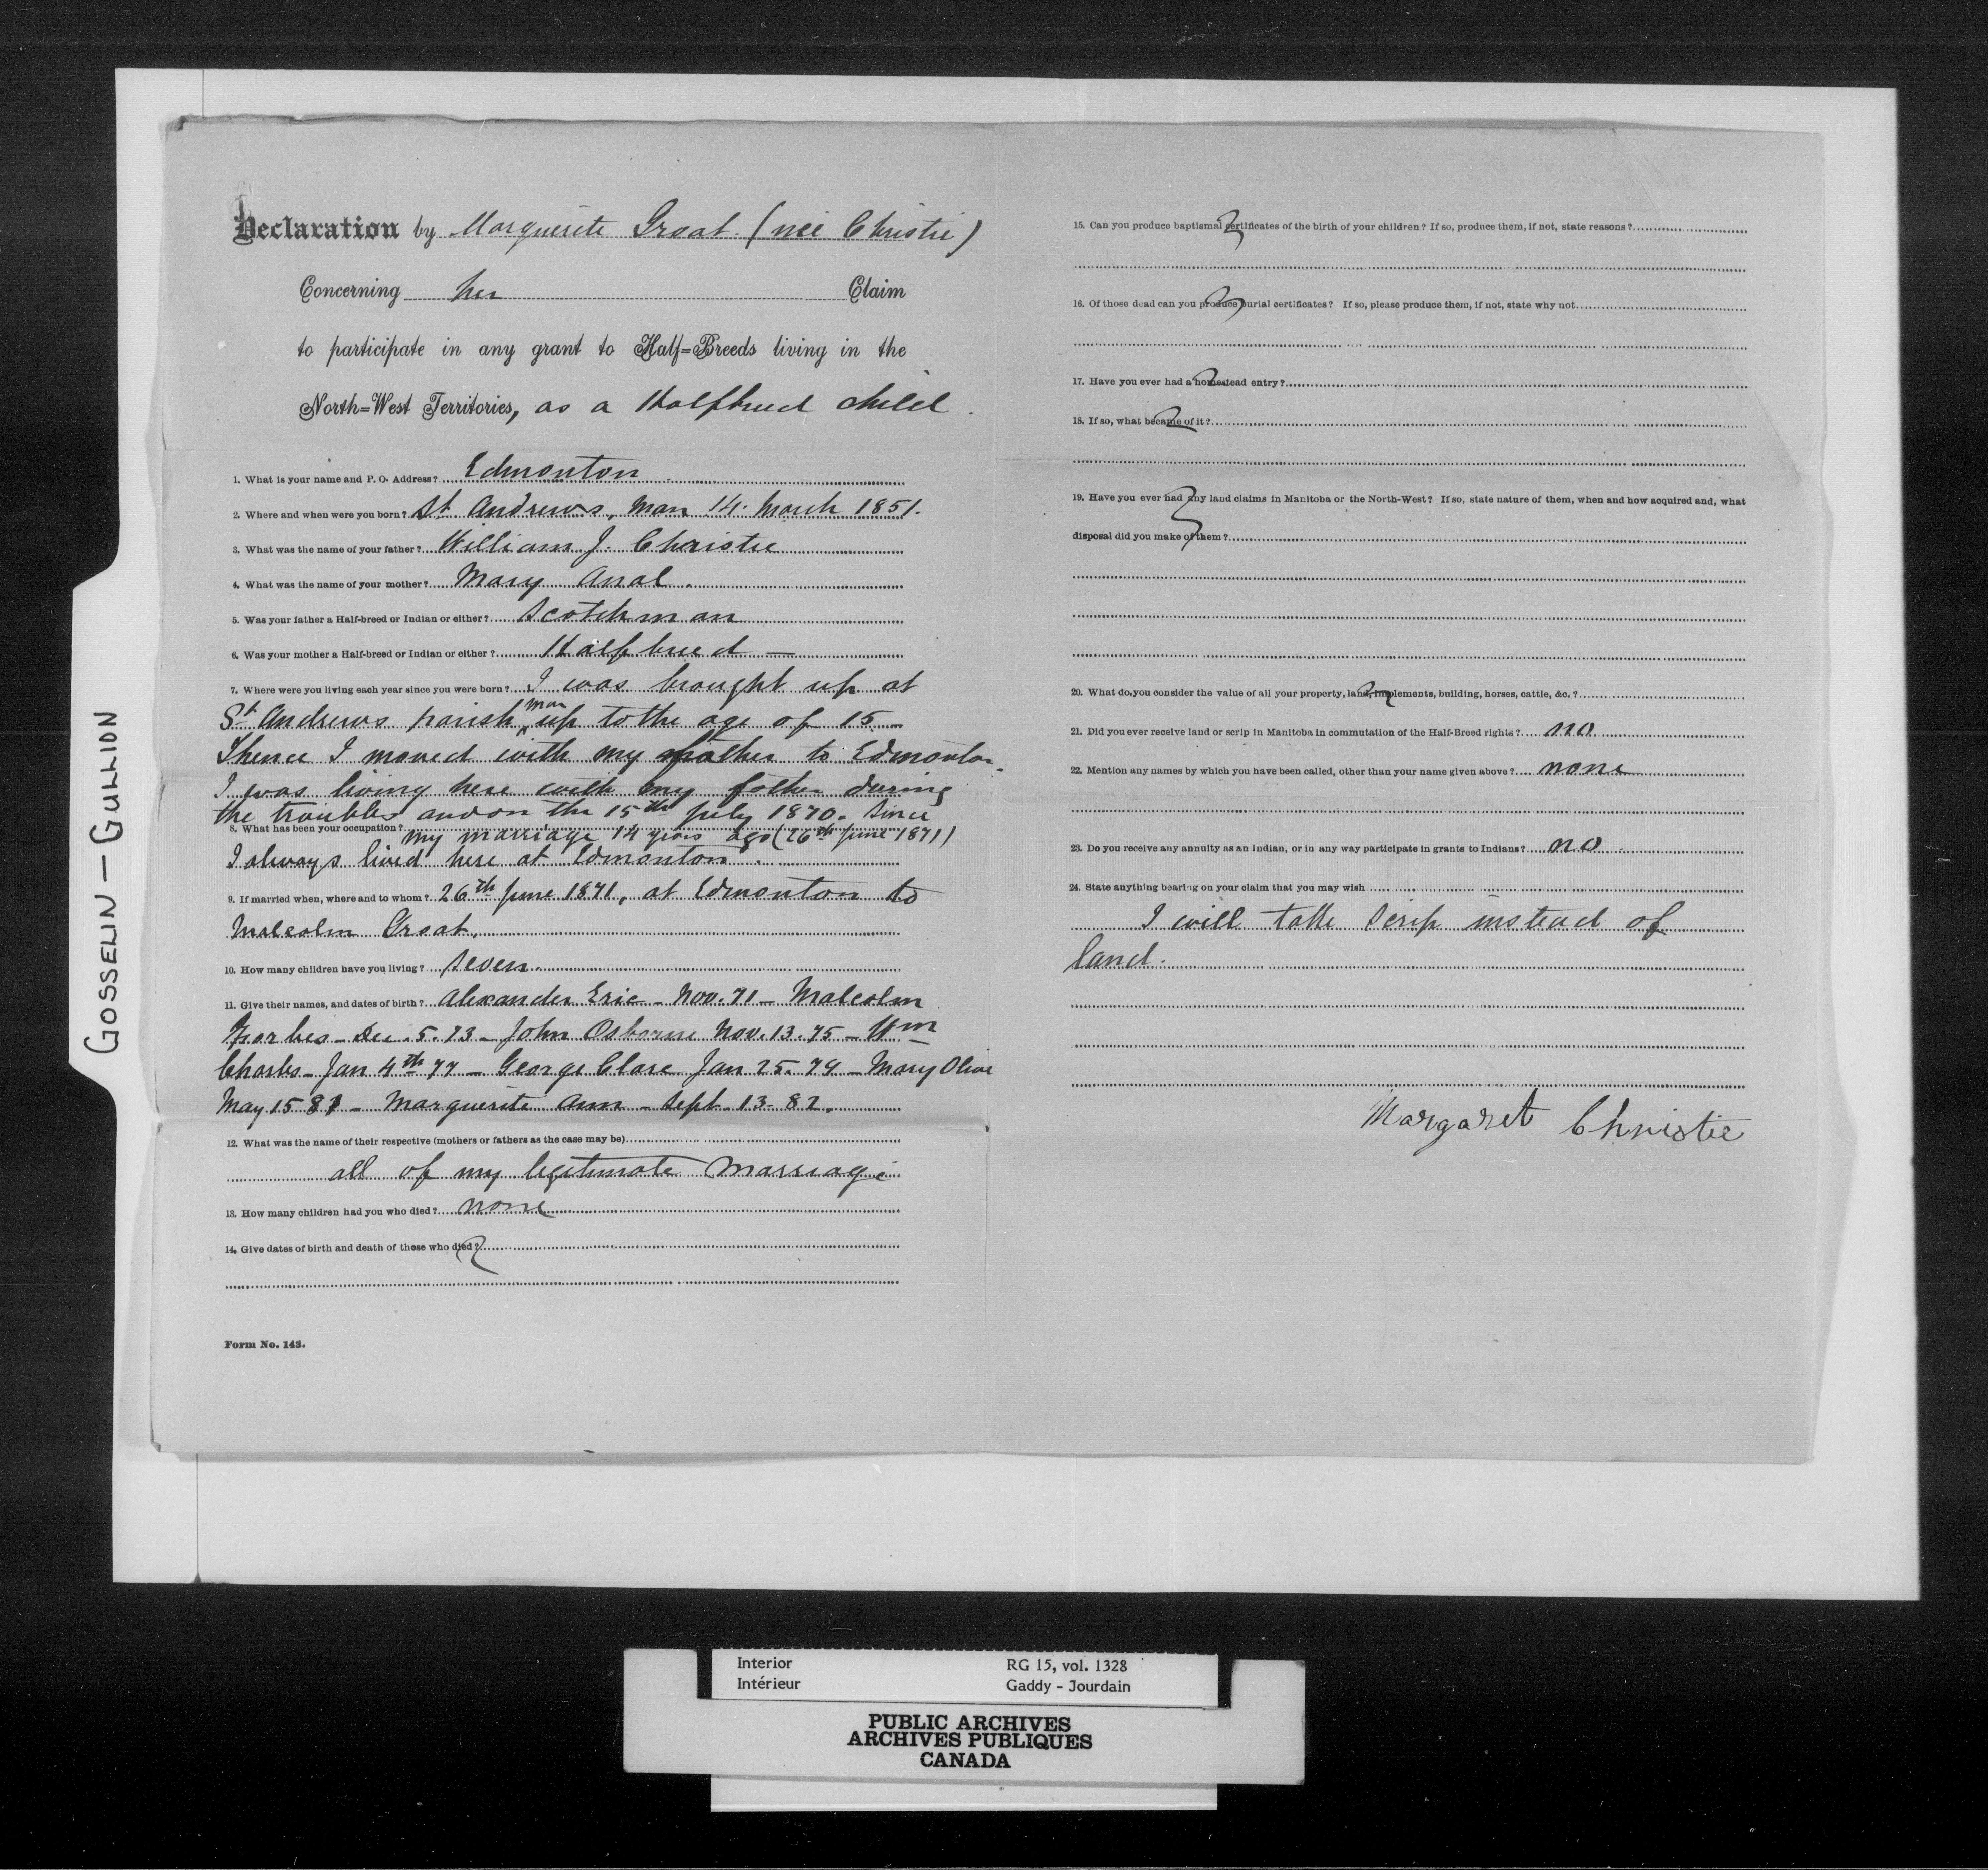 GOSSELIN — GULLION
Declaration by Marguerite Groat (née Christie)
Concerning her Claim
to participate in any grant to Half=Breeds living in the
North=West Territories, as a Halfbreed child.
1. What is your name and P. O. Address? Edmonton
2. Where and when were you born? St Andrews, Man 14. March 1851.
3. What was the name of your father? William J. Christie
4. What was the name of your mother? Mary
5. Was your father a Half-breed or Indian or either? Scotchman
6. Was your mother a Half-breed or Indian or either? Halfbreed —
7. Where were you living each year since you were born? I was brought up at
St. Andrews parish, Man up to the age of 15 —
Thence I moved with my father to Edmonton.
I was living here with my father during
the troubles and on the 15th July 1870. Since
8. What has been your occupation? my marriage 14 years ago (26th June 1871)
I always lived here at Edmonton.
9. If married when, where and to whom? 26th June 1871, at Edmonton to
Malcolm Groat.
10. How many children have you living? Seven.
11. Give their names, and dates of birth? Alexander Eric - Nov. 71 - Malcolm
Forbes - Dec. 5. 73 - John Osborne Nov. 13. 75 - Wm
Charles - Jan 4th 77 - George Clare Jan 25. 79 - Mary Olive
May 15 81 - Marguerite Ann - Sept - 13 - 82.
12. What was the name of their respective (mothers or fathers as the case may be)
all of my legitimate marriage
13. How many children had you who died? none
14. Give dates of birth and death of those who died?
Form No. 143.
15. Can you produce baptismal certificates of the birth of your children? If so, produce them, if not, state reasons?
16. Of those dead can you produce burial certificates? If so, please produce them, if not, state why not
17. Have you ever had a homestead entry?
18. If so, what became of it?
19. Have you ever had any land claims in Manitoba or the North-West? If so, state nature of them, when and how acquired and, what
disposal did you make of them?
20. What do you consider the value of all your property, land, implements, building, horses, cattle, &c.?
21. Did you ever receive land or scrip in Manitoba in commutation of the Half-Breed rights? no
22. Mention any names by which you have been called, other than your name given above? none
23. Do you receive any annuity as an Indian, or in any way participate in grants to Indians? no.
24. State anything bearing on your claim that you may wish
I will take scrip instead of
land.
Margaret Christie
Interior RG 15, vol. 1328
Intérieur Gaddy - Jourdain
PUBLIC ARCHIVES
ARCHIVES PUBLIQUES
CANADA